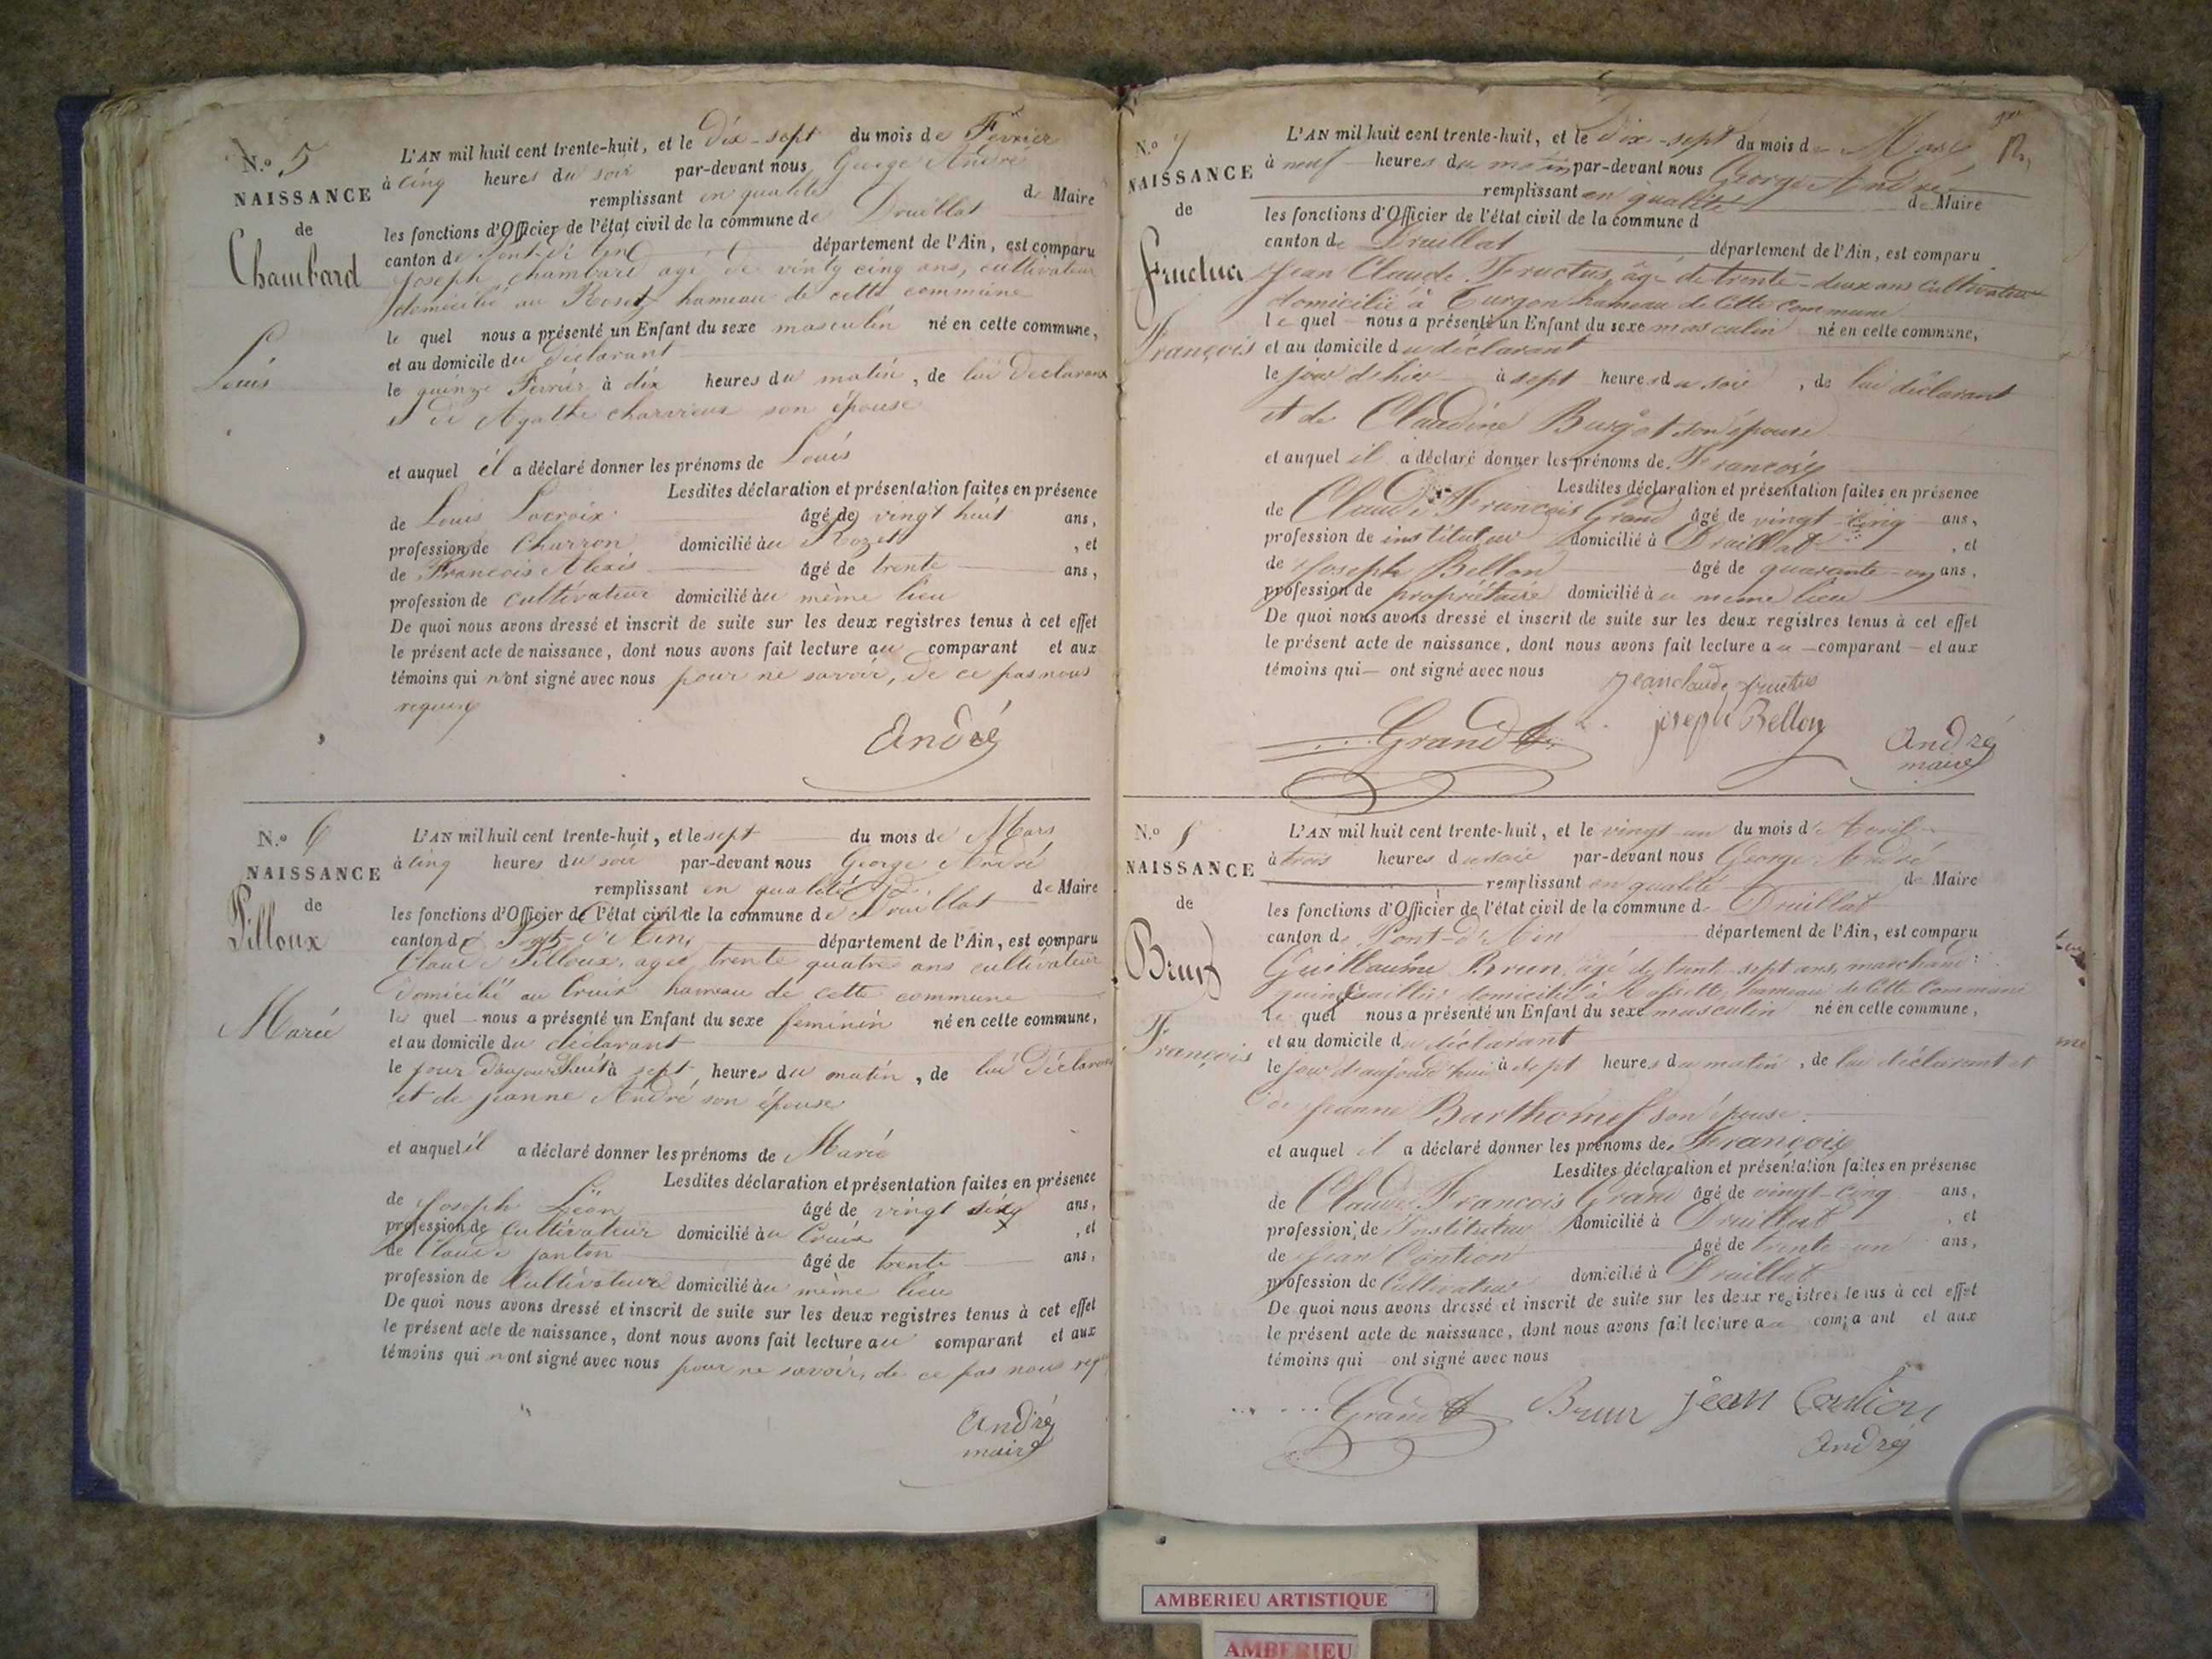 N.º 5
NAISSANCE
de
Chambard
Louis
L'AN mil huit cent trente-huit, et le dix-sept du mois de Fevrier
à cinq heures du soir par-devant nous George André
remplissant en qualité de Maire
les fonctions d'Officier de l'état civil de la commune de Druillat
canton de Pont-d'Ain département de l'Ain, est comparu
Joseph Chambard agé de vingt cinq ans, cultivateur
domicilié au Rozet hameau de cette commune
le quel nous a présenté un Enfant du sexe masculin né en cette commune,
et au domicile du déclarant
le quinze Fevrier à dix heures du matin, de lui déclarant
et de Agathe charvieux son épouse
et auquel il a déclaré donner les prénoms de Louis
Lesdites déclaration et présentation faites en présence
de Louis Lacroix âgé de vingt huit ans,
profession de Charron domicilié au Rozet, et
de François Alexis âgé de trente ans,
profession de cultivateur domicilié au même lieu
De quoi nous avons dressé et inscrit de suite sur les deux registres tenus à cet effet
le présent acte de naissance, dont nous avons fait lecture au comparant et aux
témoins qui n'ont signé avec nous pour ne savoir, de ce pas nous
requis
André
N.º 6
NAISSANCE
de
Pilloux
Marie
L'AN mil huit cent trente-huit, et le sept du mois de Mars
à cinq heures du soir par-devant nous George André
remplissant en qualité de Maire
les fonctions d'Officier de l'état civil de la commune de Druillat
canton de Pont-d'Ain département de l'Ain, est comparu
Claude Pilloux, agé trente quatre ans cultivateur
domicilié au Cruix hameau de cette commune
le quel nous a présenté un Enfant du sexe feminin né en cette commune,
et au domicile du déclarant
le jour d'aujourd'hui à sept heures du matin, de lui déclarant
et de jeanne André son épouse
et auquel il a déclaré donner les prénoms de Marie
Lesdites déclaration et présentation faites en présence
de Joseph Léon âgé de vingt ans,
profession de cultivateur domicilié au Cruix, et
de Claude janton âgé de trente ans,
profession de Cultivateur domicilié au même lieu
De quoi nous avons dressé et inscrit de suite sur les deux registres tenus à cet effet
le présent acte de naissance, dont nous avons fait lecture au comparant et aux
témoins qui n'ont signé avec nous pour ne savoir, de ce pas nous
André
maire
N.º 7
NAISSANCE
de
Fructus
François
L'AN mil huit cent trente-huit, et le dix-sept du mois de Mars
à neuf heures du matin par-devant nous George André
remplissant en qualité de Maire
les fonctions d'Officier de l'état civil de la commune d
canton de Druillat département de l'Ain, est comparu
Jean Claude Fructus, âgé de trente-deux ans cultivateur
domicilié à Turgon hameau de cette commune
le quel nous a présenté un Enfant du sexe masculin né en cette commune,
et au domicile du déclarant
le jour d'hier à sept heures du soir, de lui déclarant
et de Claudine Burgat son épouse
et auquel il a déclaré donner les prénoms de François
Lesdites déclaration et présentation faites en présence
de Claude François Grand âgé de vingt-cinq ans,
profession de instituteur domicilié à Druillat, et
de Joseph Bellon âgé de quarante-un ans,
profession de propriétaire domicilié au même lieu
De quoi nous avons dressé et inscrit de suite sur les deux registres tenus à cet effet
le présent acte de naissance, dont nous avons fait lecture au comparant et aux
témoins qui ont signé avec nous
Jeanclaude fructus
Grand joseph Bellon André
maire
N.º 8
NAISSANCE
de
Brun
François
L'AN mil huit cent trente-huit, et le vingt-un du mois d'Avril
à trois heures du soir par-devant nous George André
remplissant en qualité de Maire
les fonctions d'Officier de l'état civil de la commune de Druillat
canton de Pont-d'Ain département de l'Ain, est comparu
Guillaume Brun, âgé de trente-sept ans, marchand
quincaillier domicilié à hameau de cette Commune
le quel nous a présenté un Enfant du sexe masculin né en cette commune,
et au domicile du déclarant
le jour d'aujourd'hui à sept heures du matin, de lui déclarant et
de Jeanne Barthomef son épouse
et auquel il a déclaré donner les prénoms de François
Lesdites déclaration et présentation faites en présence
de Claude François Grand âgé de vingt-cinq ans,
profession de Instituteur domicilié à Druillat, et
de Jean Contion âgé de trente-un ans,
profession de Cultivateur domicilié à Druillat
De quoi nous avons dressé et inscrit de suite sur les deux registres tenus à cet effet
le présent acte de naissance, dont nous avons fait lecture au comparant et aux
témoins qui ont signé avec nous
Grand Brun jean Contion
André
AMBERIEU ARTISTIQUE
AMBERIEU